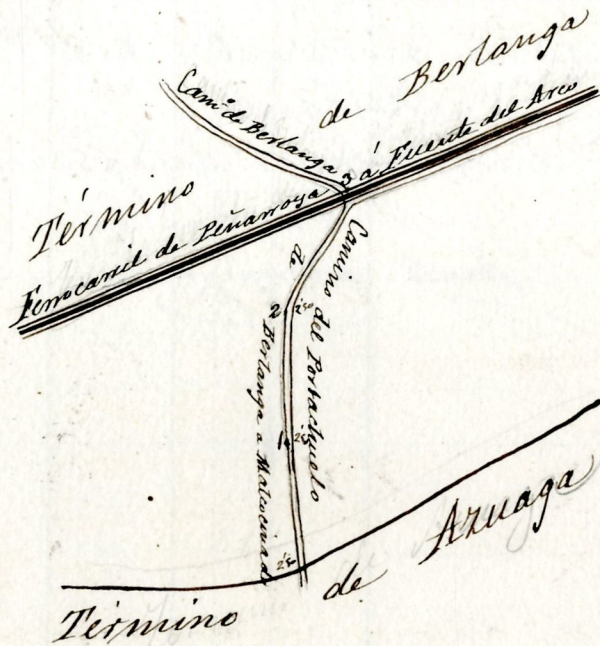 Término de Berlanga
Cam.º de Berlanga
Ferrocarril de Peñarroya á Fuente del Arco
3
Camino del Portachuelo
de Berlanga a Malcocinado
2 2'50
1 2'50
2'50
Término de Azuaga